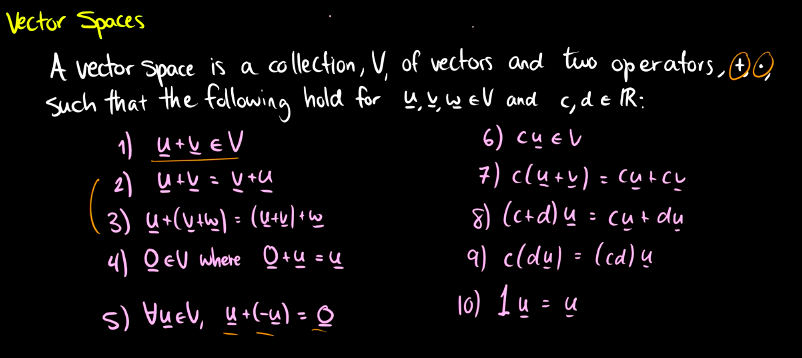 Vector Spaces
A vector space is a collection, V, of vectors and two operators, +, ·,
such that the following hold for u, v, w ∈ V and c, d ∈ ℝ:
1) u + v ∈ V
2) u + v = v + u
3) u + (v + w) = (u + v) + w
4) 0 ∈ V where 0 + u = u
5) ∀u ∈ V, u + (-u) = 0
6) cu ∈ V
7) c(u + v) = cu + cv
8) (c + d)u = cu + du
9) c(du) = (cd)u
10) 1u = u